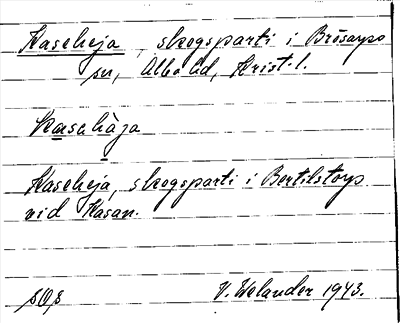 Kaseheja, skogsparti i Brösarps
sn, Albo hd, Krist. l.
Kasehäja
Kaseheja, skogsparti i Bertilstorp
vid Kasan.
V. Welander 1943.